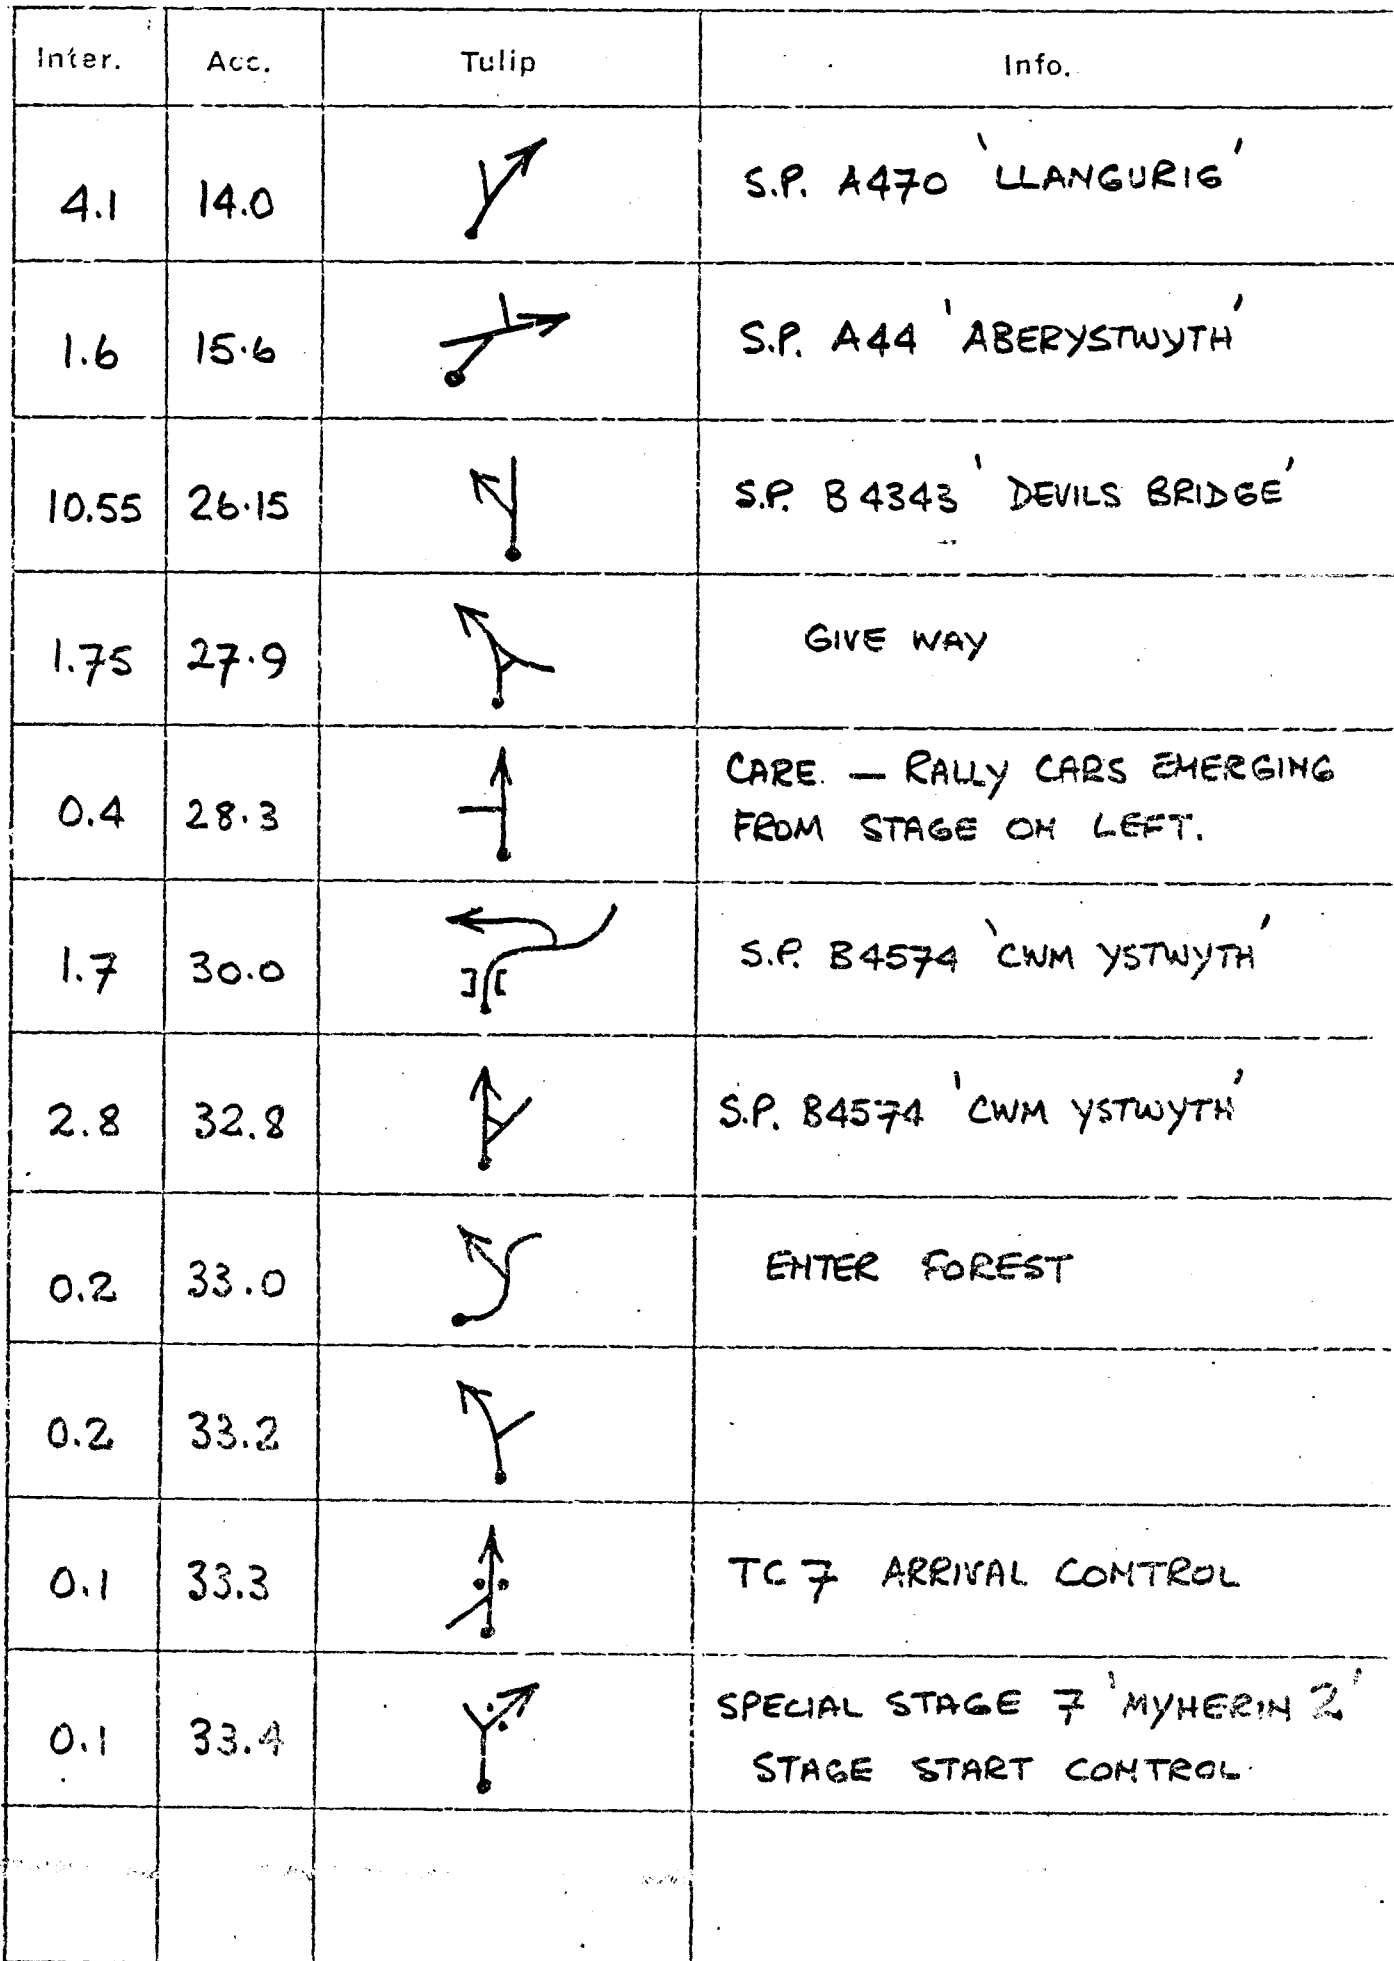 Inter. Acc. Tulip Info.
4.1 14.0 S.P. A470 'LLANGURIG'
1.6 15.6 S.P. A44 'ABERYSTWYTH'
10.55 26.15 S.P. B4343 'DEVILS BRIDGE'
1.75 27.9 GIVE WAY
0.4 28.3 CARE. — RALLY CARS EMERGING
FROM STAGE ON LEFT.
1.7 30.0 S.P. B4574 'CWM YSTWYTH'
2.8 32.8 S.P. B4574 'CWM YSTWYTH'
0.2 33.0 ENTER FOREST
0.2 33.2
0.1 33.3 TC 7 ARRIVAL CONTROL
0.1 33.4 SPECIAL STAGE 7 'MYHERIN 2'
STAGE START CONTROL.